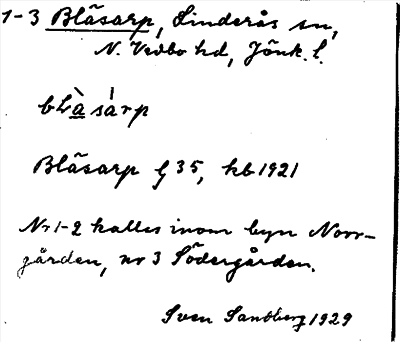 1-3 Blåsarp, Linderås sn,
N. Vedbo hd, Jönk. l.
bLà sárp
Blåsarp G 35, kb 1921
Nr 1-2 kallas inom byn Norr-
gården, nr 3 Södergården.
Sven Sandberg 1929